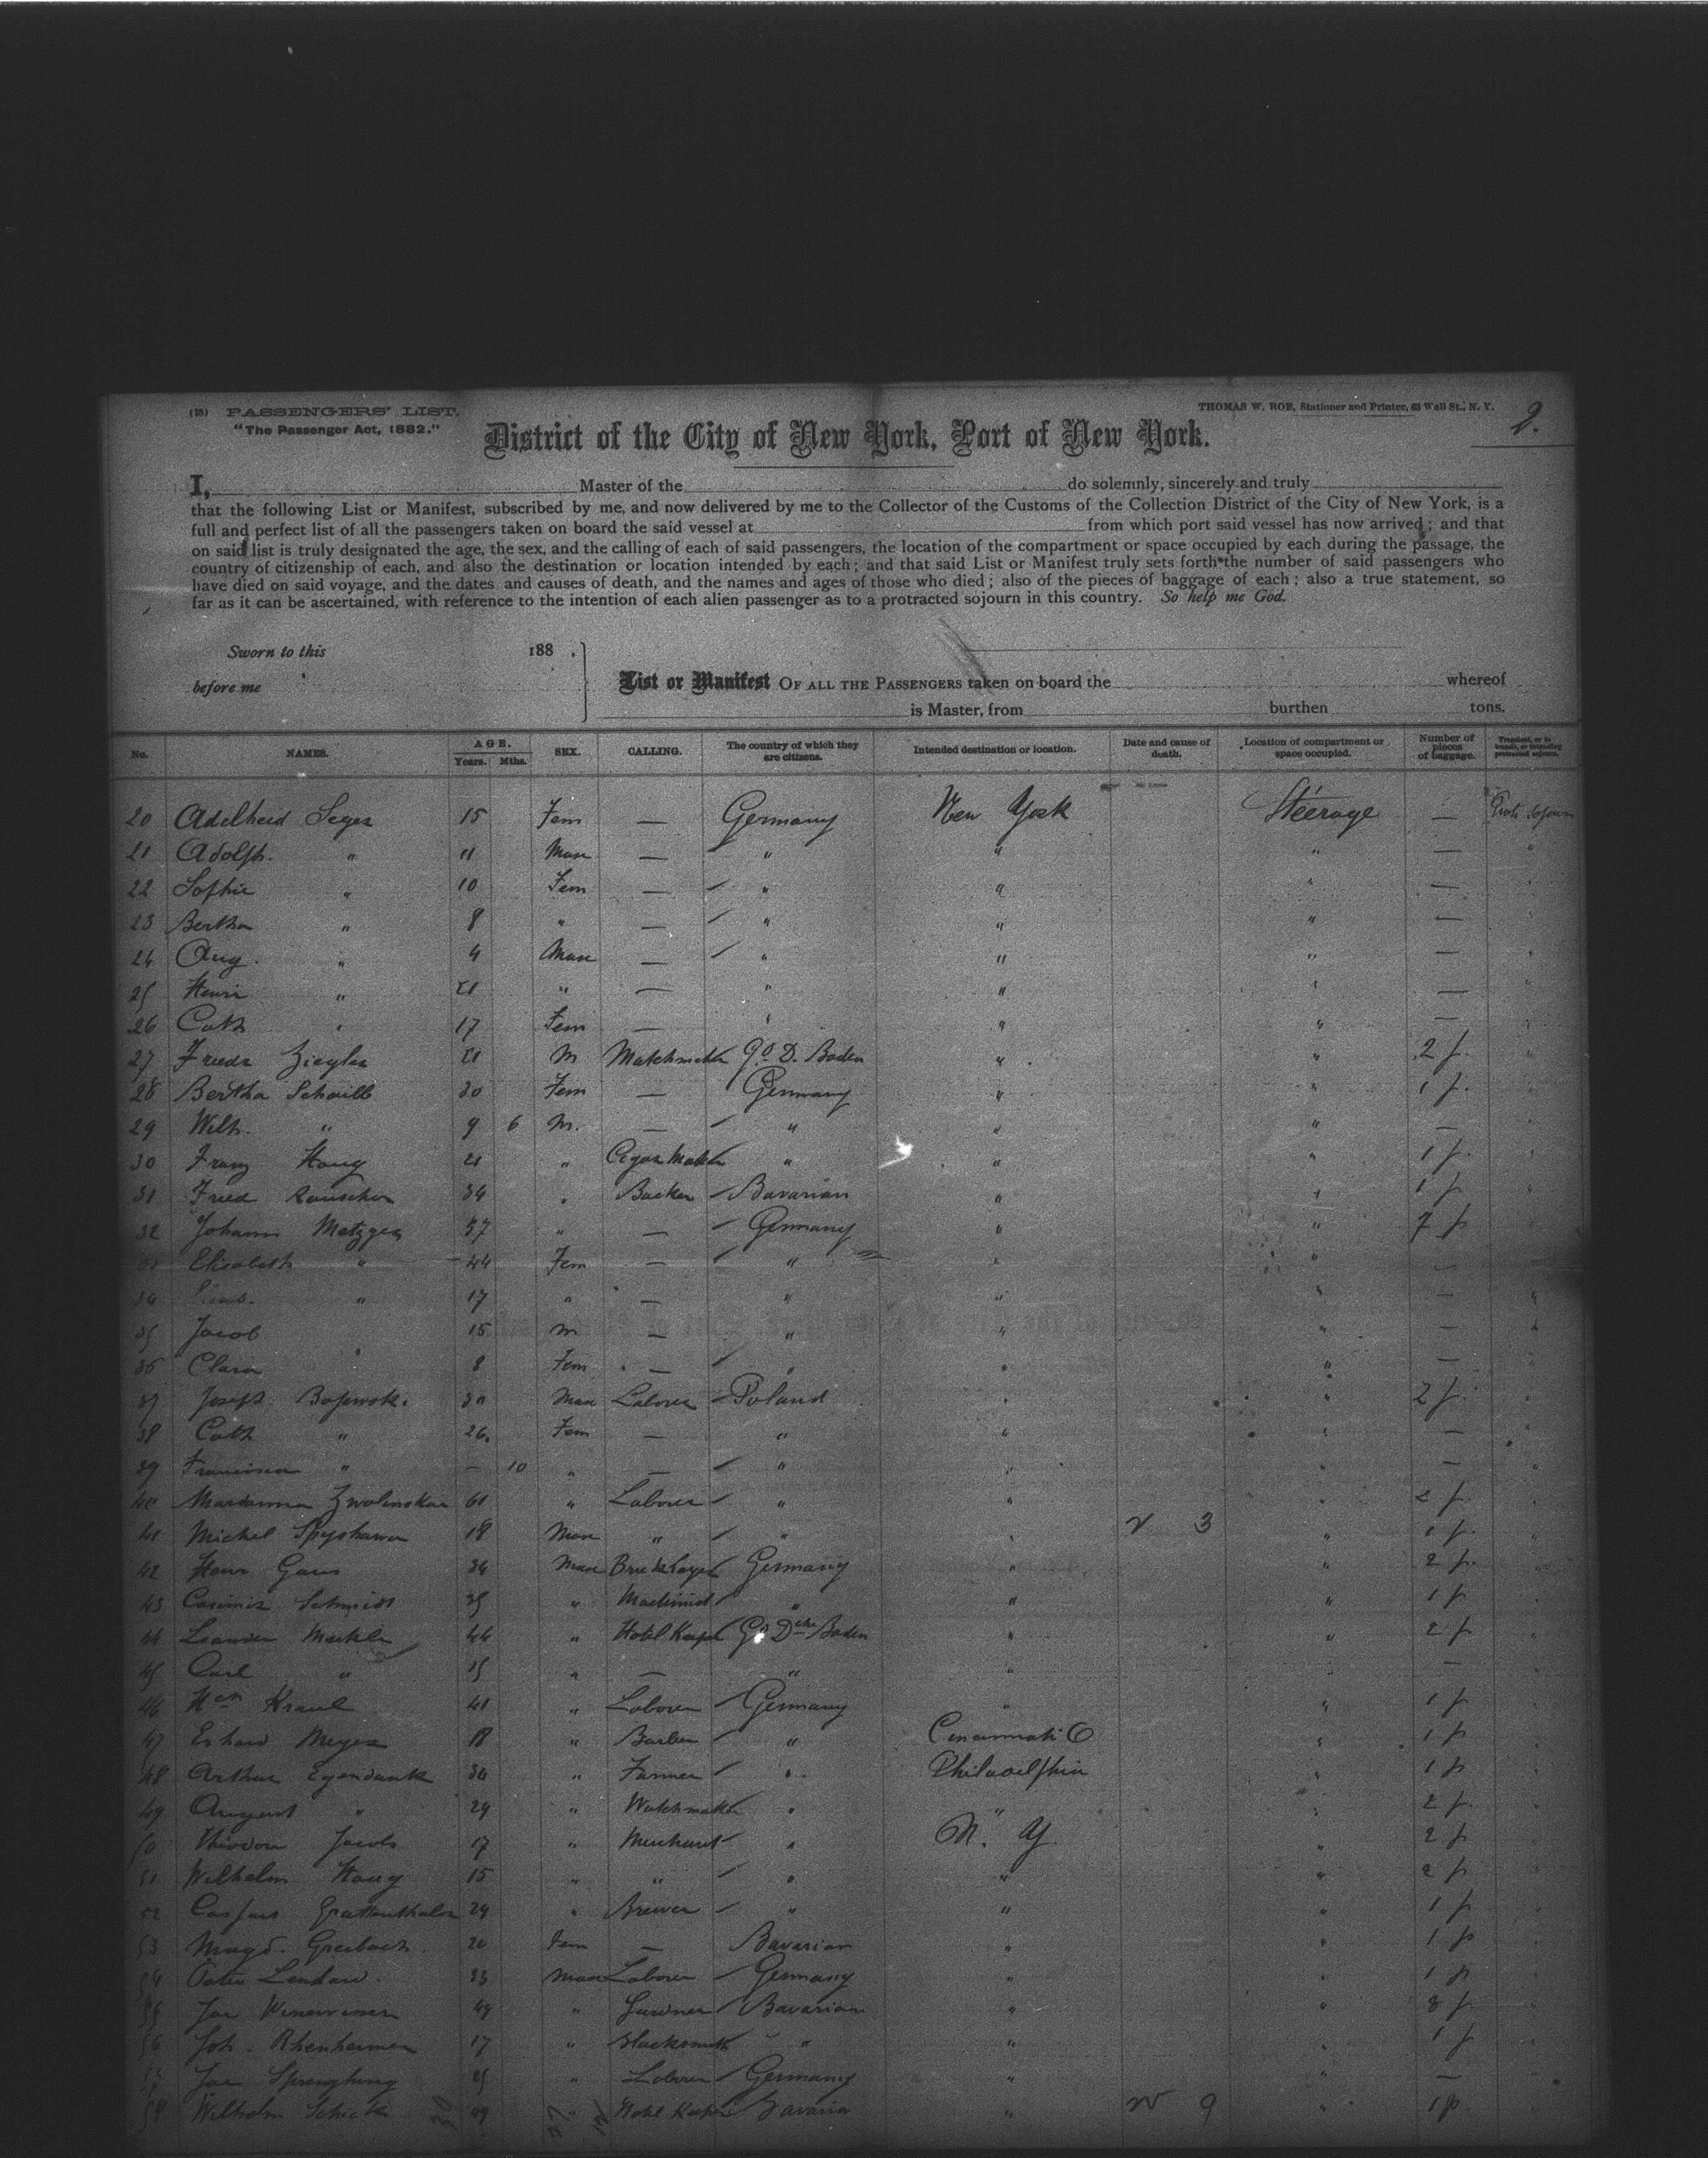 (18) PASSENGERS' LIST.
"The Passenger Act, 1882."
THOMAS W. ROE, Stationer and Printer, 63 Wall St., N. Y.
2.
District of the City of New York, Port of New York.
I, Master of the do solemnly, sincerely and truly
that the following List or Manifest, subscribed by me, and now delivered by me to the Collector of the Customs of the Collection District of the City of New York, is a
full and perfect list of all the passengers taken on board the said vessel at from which port said vessel has now arrived; and that
on said list is truly designated the age, the sex, and the calling of each of said passengers, the location of the compartment or space occupied by each during the passage, the
country of citizenship of each, and also the destination or location intended by each; and that said List or Manifest truly sets forth the number of said passengers who
have died on said voyage, and the dates and causes of death, and the names and ages of those who died; also of the pieces of baggage of each; also a true statement, so
far as it can be ascertained, with reference to the intention of each alien passenger as to a protracted sojourn in this country. So help me God.
Sworn to this 188 .
before me
List or Manifest OF ALL THE PASSENGERS taken on board the whereof
is Master, from burthen tons.
No. NAMES. AGE. Years. Mths. SEX. CALLING. The country of which they are citizens. Intended destination or location. Date and cause of death. Location of compartment or space occupied. Number of pieces of baggage. Transient, or in transit, or intending protracted sojourn.
20 Adelheid Seger 15 Fem — Germany New York Steerage — Prot. Sojourn
21 Adolph. " 11 Masc — " " " — "
22 Sophie " 10 Fem — " " " —
23 Bertha " 8 " — " " " —
24 Aug. " 4 Masc — " " " — "
25 Henri " 21 " — " " " —
26 Cath " 17 Fem — " " " —
27 Friedr Ziegler 21 M Matchmaker Go D. Baden " " 2 p. "
28 Bertha Schaible 30 Fem — Germany " " 1 p.
29 Wilh. " 9 6 M. — " " " —
30 Franz Haug 21 " Cigar Maker " " " 1 p.
31 Fried Rauscher 34 " Backer Bavarian " " 1 p
32 Johann Metzger 57 " — Germany " " 7 p
33 Elisabeth " 44 Fem — " " " —
34 " 17 " — " " " —
35 Jacob 15 m — " " " —
36 Clara " 8 Fem — " " " —
37 Joseph 30 Masc Laborer Poland " " 2 p.
38 Cath " 26 Fem — " " " —
39 Francisca " — 10 " — " " " —
40 Marianna Zwolinskar 61 " Laborer " " " 2 p.
41 Michel 18 Masc " " " 3 " 1 p.
42 Henr Gans 34 Masc Bricklayer Germany " " 2 p.
43 Casimir Schmidt 35 " Machinist " " " 1 p
44 Leander Merklin 44 " Hotel Keeper Go Dche Baden " " 2 p
45 Carl " 15 " — " " —
46 Hch Kraul 41 " Laborer Germany " " 1 p
47 Erhard Meyer 18 " Barber " Cincinnati O " 1 p
48 Arthur Egendank 34 " Farmer " Philadelphia " 1 p
49 August " 29 " Watchmaker " " " 2 p.
50 Theodor Jacobs 17 " Merchant " N. Y. " 2 p
51 Wilhelm Haug 15 " " " " " 2 p
52 Caspar Grattenthaler 24 " Brewer " " " 1 p
53 Magd. Griesbach 20 Fem — Bavarian " " 1 p
54 Peter Lenhard. 33 Masc Laborer Germany " " 1 p
55 49 " Gardner Bavarian " " 3 p.
56 Joh. Rhenheimer 17 " Blacksmith " " " 1 p
57 25 " Laborer Germany " " —
58 Wilhelm Schick 49 " Hotel Keeper Bavaria " 9 " 1 p.